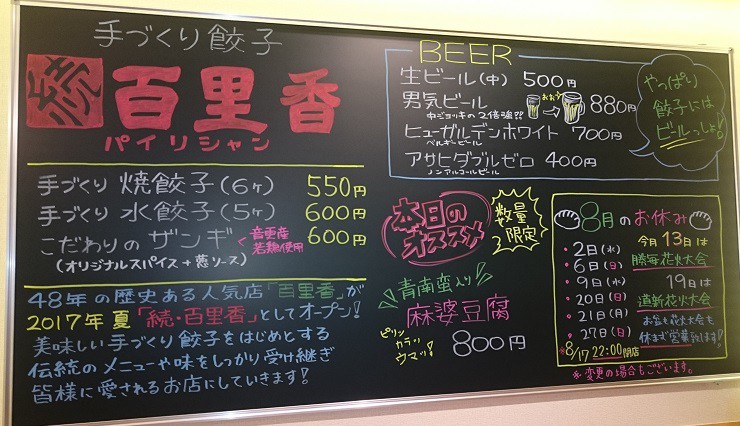 手づくり餃子
続 百里香
パイリシャン
手づくり 焼餃子(6ヶ) 550円
手づくり 水餃子(5ヶ) 600円
こだわりの ザンギ 音更産若鶏使用 600円
(オリジナルスパイス+葱ソース)
48年の歴史ある人気店「百里香」が
2017年 夏「続・百里香」としてオープン!
美味しい手づくり餃子をはじめとする
伝統のメニューや味をしっかり受け継ぎ
皆様に愛されるお店にしていきます!
BEER
生ビール(中) 500円
男気ビール おおっ 880円
中ジョッキの2倍強??
ヒューガルデンホワイト 700円
ベルギービール
アサヒダブルゼロ 400円
ノンアルコールビール
やっぱり
餃子には
ビールっしょ!
本日の
オススメ
数量
限定
青南蛮入り
麻婆豆腐
ピリッ
カラッ
ウマッ!
800円
8月のお休み
・2日(水)
・6日(日)
・9日(水)
・20日(日)
・21日(月)
・27日(日)
※8/17 22:00閉店
今月13日は
勝毎花火大会
19日は
道新花火大会
お盆も花火大会も
休まず営業致します!
※変更の場合もございます。